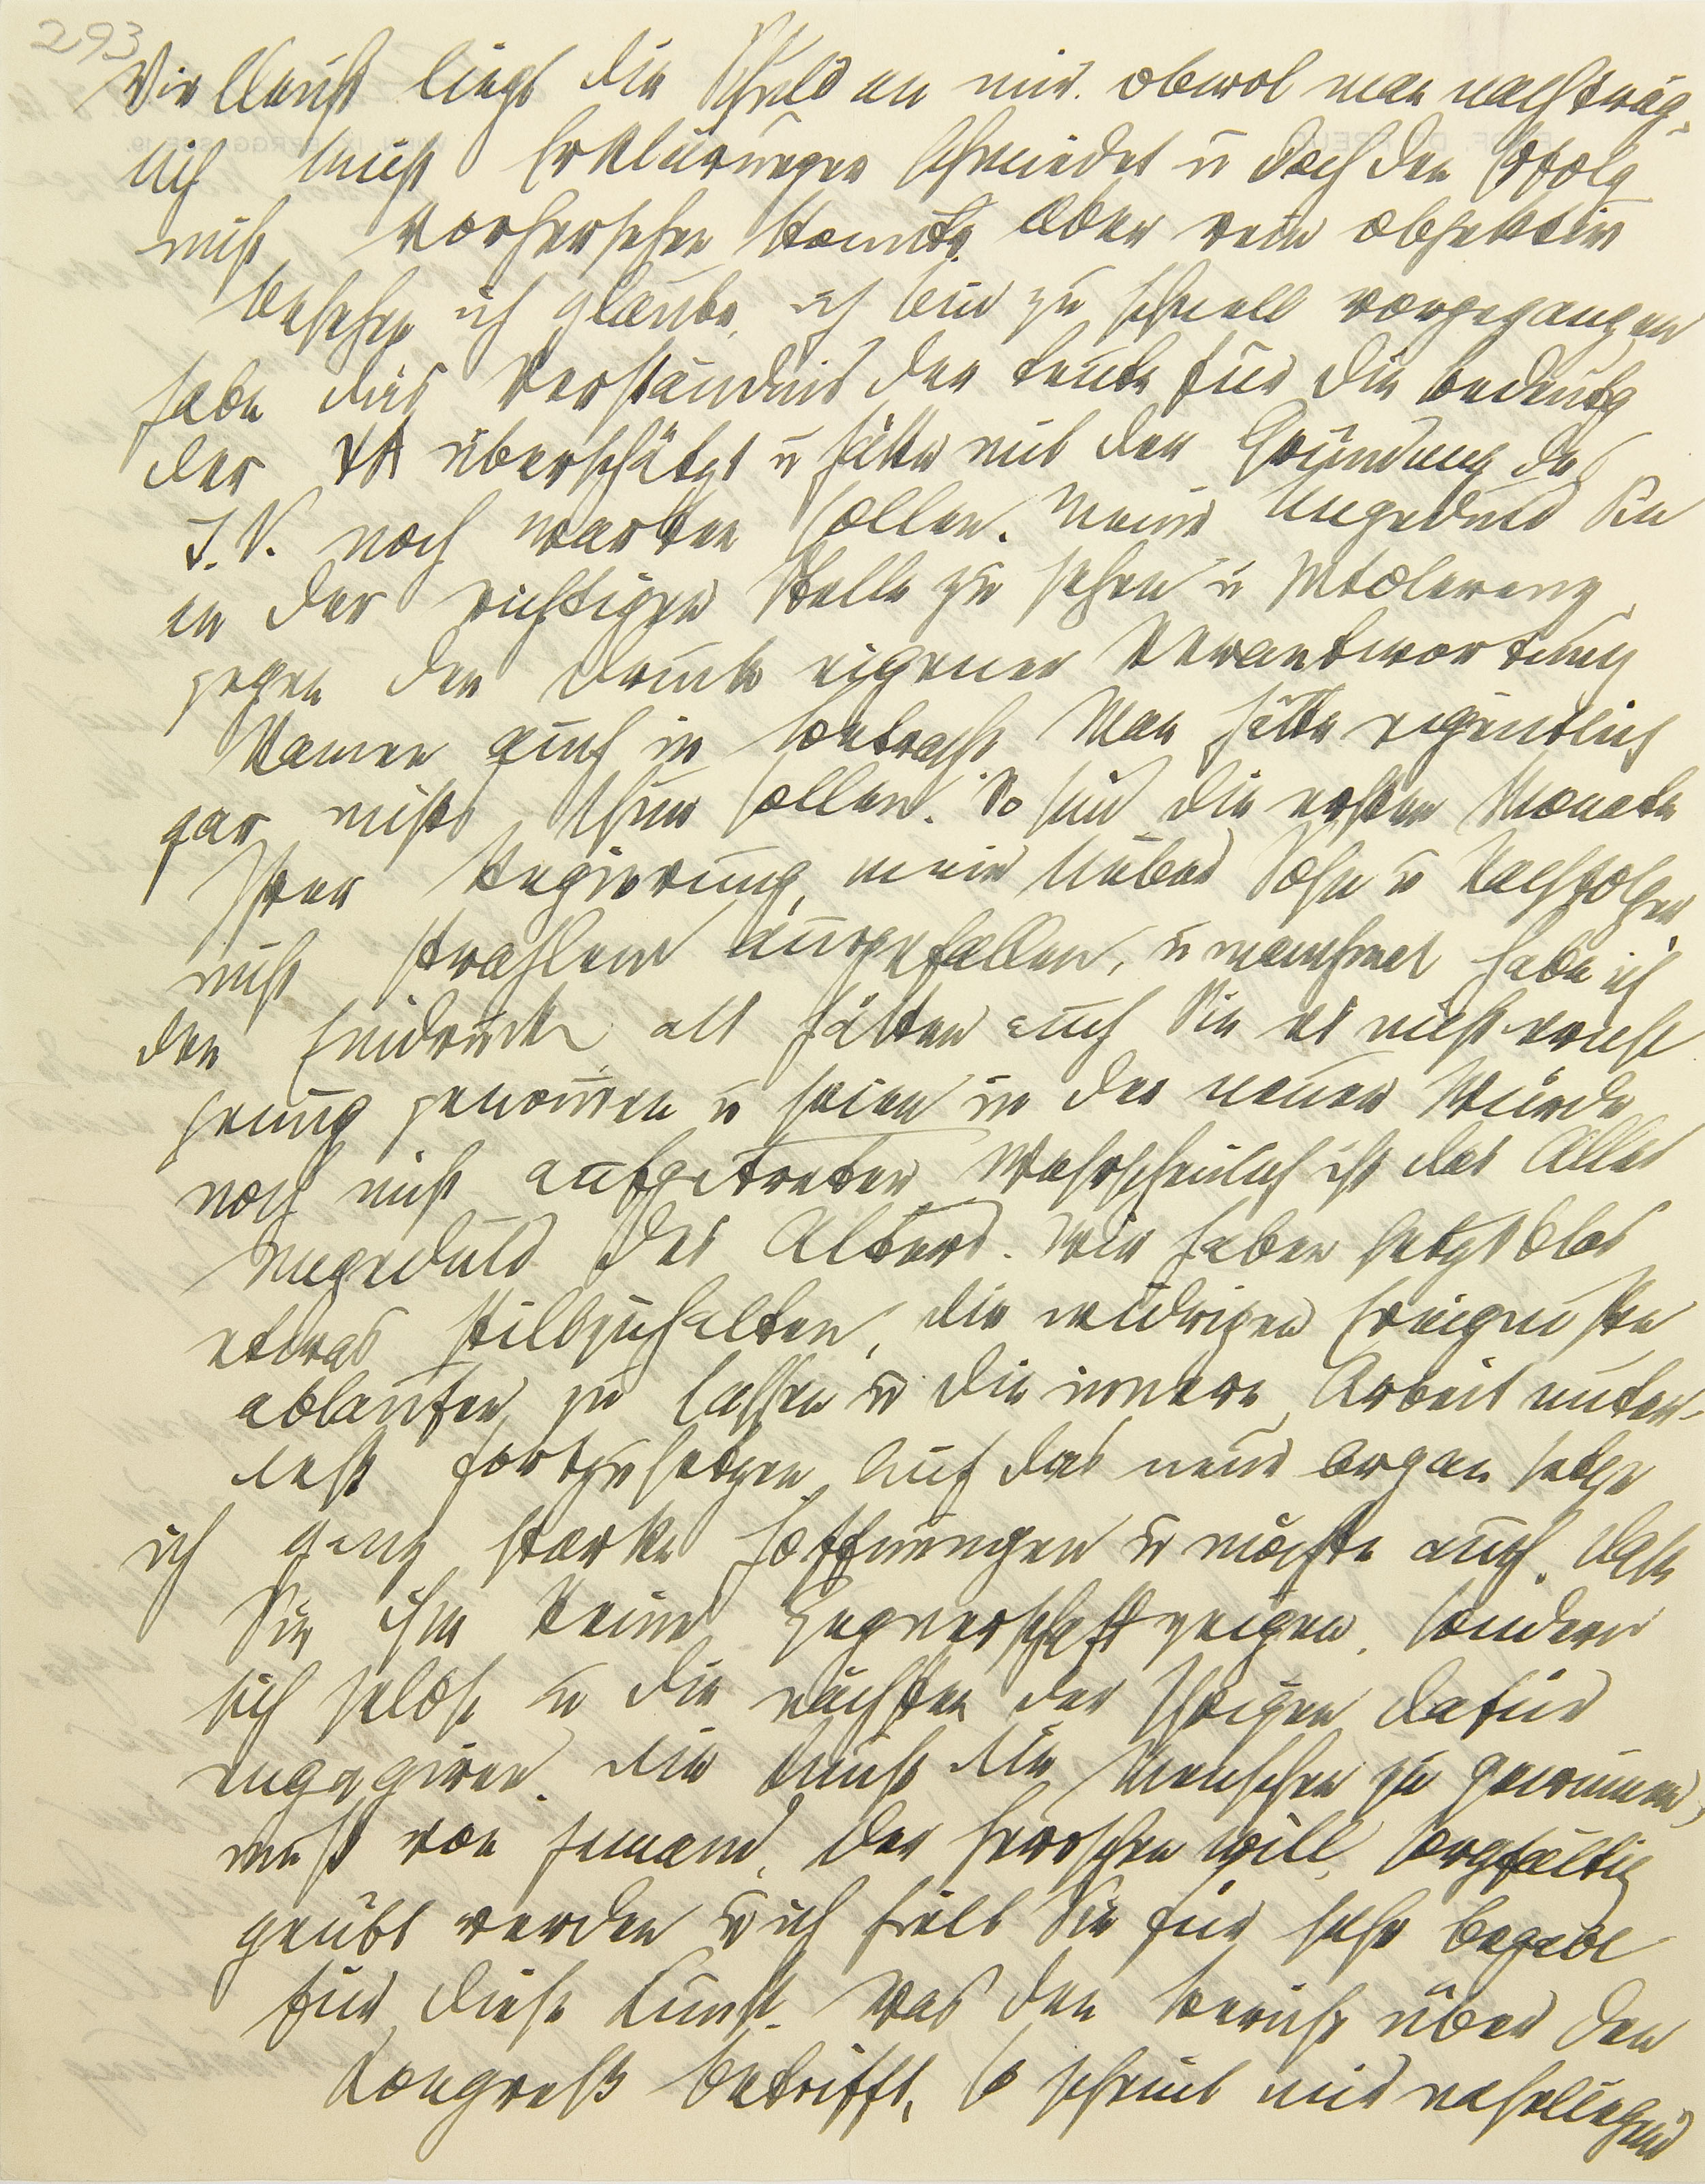 293
Vielleicht liegt die Schuld an mir. obwol man nachträg-
lich leicht Erklärungen schmiedet u doch den Erfolg
nicht vorhersehen konnte. Aber rein objektiv
besehen, ich glaube, ich bin zu schnell vorgegangen
habe das Verständnis der Leute für die Bedeutg
der ΨA überschätzt u hätte mit der Gründung der
I.V. noch warten sollen. Meine Ungeduld Sie
an der richtigen Stelle zu sehen u Intoleranz
gegen den Druck eigener Verantwortung
kamen auch in Betracht. Man hätte eigentlich
gar nichts thun sollen. So sind die ersten Monate
Ihrer Regierung, mein lieber Sohn u Nachfolger,
nicht strahlend ausgefallen, u manchmal habe ich
den Eindruck als hätten auch Sie es nicht ernst
genug genom̄en u seien in der neuen Würde
noch nicht aufgetreten. Wahrscheinlich ist das Alles
Ungeduld des Alters. Wir haben jetzt blos
etwas stillzuhalten, die widrigen Ereignisse
ablaufen zu lassen u die innere Arbeit unter-
dess fortzusetzen. Auf das neue Organ setze
ich ganz starke Hoffnungen u möchte auch, dass
Sie ihm keine Gegnerschaft zeigen, sondern
sich selbst u die nächsten der Ihrigen dafür
engagiren. Die Kunst die Menschen zu gewinnen,
muß von jemand, der herrschen will, sorgfältig
geübt werden u ich hielt Sie für sehr begabt
für diese Kunst. Was den Bericht über den
Kongreß betrifft, so scheint mir naheliegend